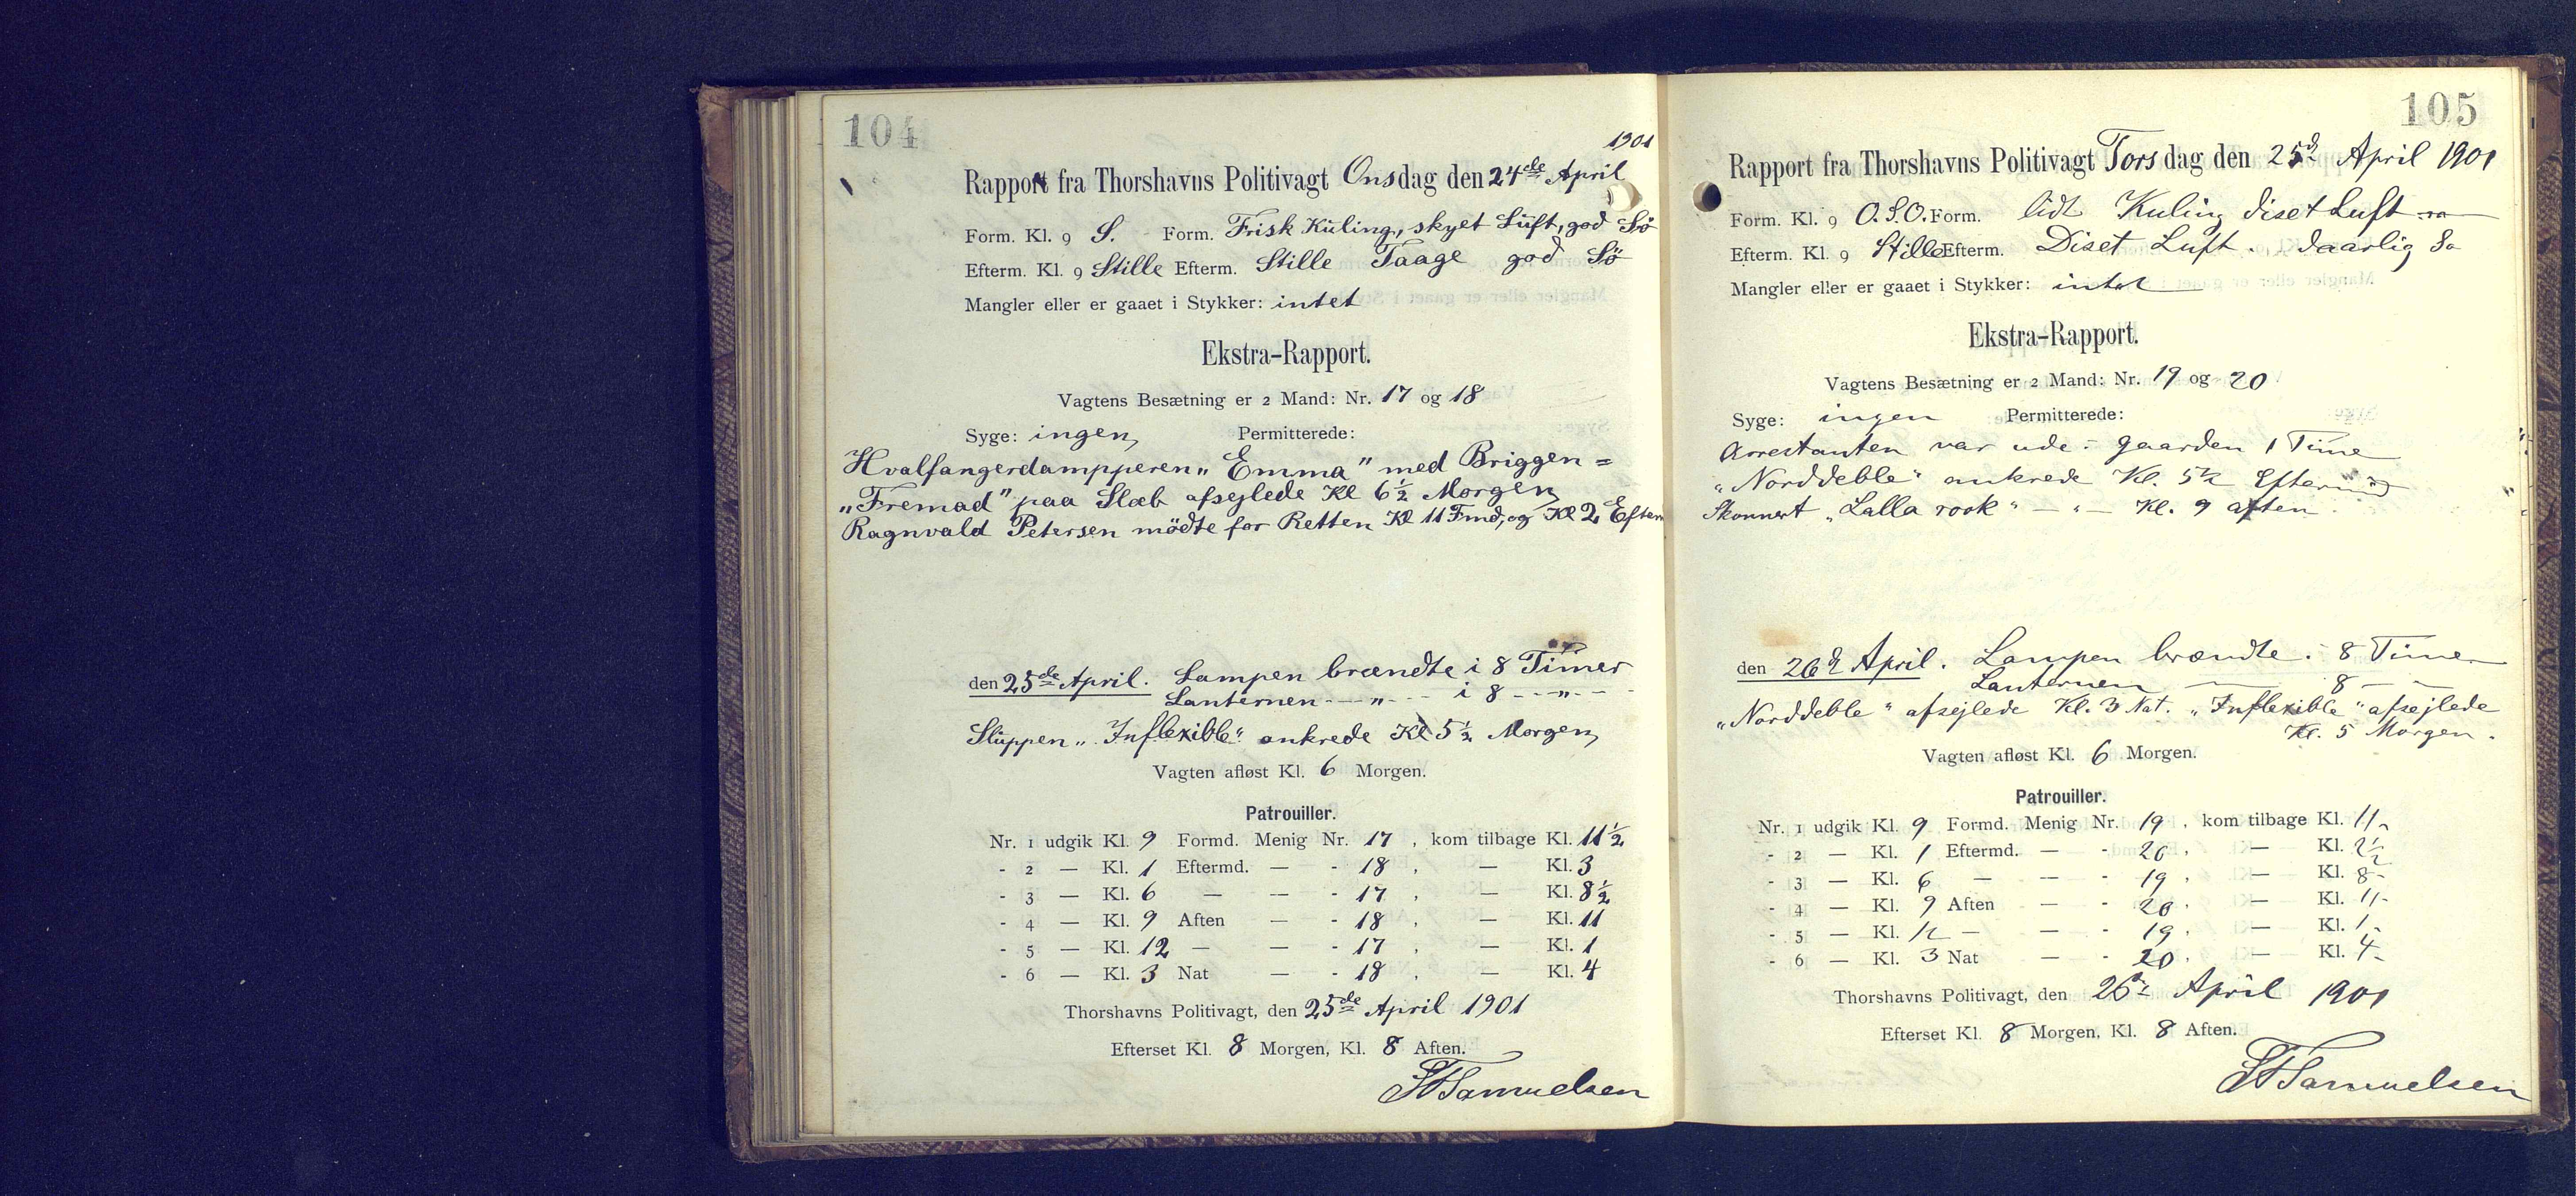 104
1901
Rapport fra Thorshavns Politivagt Onsdag den 24de April
Form. Kl. 9 S. Form. Frisk Kuling, skyet Luft, god Sö
Efterm. Kl. 9 Stille Efterm. Stille Taage god Sö
Mangler eller er gaaet i Stykker: intet
Ekstra-Rapport.
Vagtens Besætning er 2 Mand: Nr. 17 og 18
Syge: ingen, Permitterede:
Hvalfangerdampperen „Emma" med Briggen =
„Fremad" paa Slæb afsejlede Kl 6½ Morgen,
Ragnvald Petersen mödte for Retten Kl 11 Fmd, og Kl 2 Efterm
den 25de April. Lampen brændte i 8 Timer
Lanternen - — „ - - i 8 - - „ - -
Sluppen „Inflexible" ankrede Kl 5½ Morgen,
Vagten afløst Kl. 6 Morgen.
Patrouiller.
Nr. 1 udgik Kl. 9 Formd. Menig Nr. 17 , kom tilbage Kl. 11½
- 2 — Kl. 1 Eftermd. — - 18 , — Kl. 3
- 3 — Kl. 6 — — - 17 , — Kl. 8½
- 4 — Kl. 9 Aften — - 18 , — Kl. 11
- 5 — Kl. 12 — — - 17 , — Kl. 1
- 6 — Kl. 3 Nat — - 18 , — Kl. 4
Thorshavns Politivagt, den 25de April 1901
Efterset Kl. 8 Morgen, Kl. 8 Aften.
Samuelsen
105
Rapport fra Thorshavns Politivagt Torsdag den 25d April 1901
Form. Kl. 9 O.S.O. Form. lidt Kuling diset Luft
Efterm. Kl. 9 Stille Efterm. Diset Luft. daarlig So
Mangler eller er gaaet i Stykker: intet
Ekstra-Rapport.
Vagtens Besætning er 2 Mand: Nr. 19 og 20
Syge: ingen Permitterede:
Arrestanten var ude i gaarden 1 Time
„Norddeble" ankrede Kl. 5½ Efterm
Skonnert „Lalla rook" — „ — Kl. 9 aften
den 26d April. Lampen brændte i 8 Timer
Lanternen — 8 — —
„Norddeble" afsejlede Kl. 3 Nat. „Inflexible" afsejlede
Kl. 5 Morgen.
Vagten afløst Kl. 6 Morgen.
Patrouiller.
Nr. 1 udgik Kl. 9 Formd. Menig Nr. 19 , kom tilbage Kl. 11-
- 2 — Kl. 1 Eftermd. — - 20 , — Kl. 2½
- 3 — Kl. 6 — — - 19 , — Kl. 8-
- 4 — Kl. 9 Aften — - 20 , — Kl. 11-
- 5 — Kl. 12 — — - 19 , — Kl. 1-
- 6 — Kl. 3 Nat — - 20 , — Kl. 4-
Thorshavns Politivagt, den 26d April 1901
Efterset Kl. 8 Morgen, Kl. 8 Aften.
Samuelsen